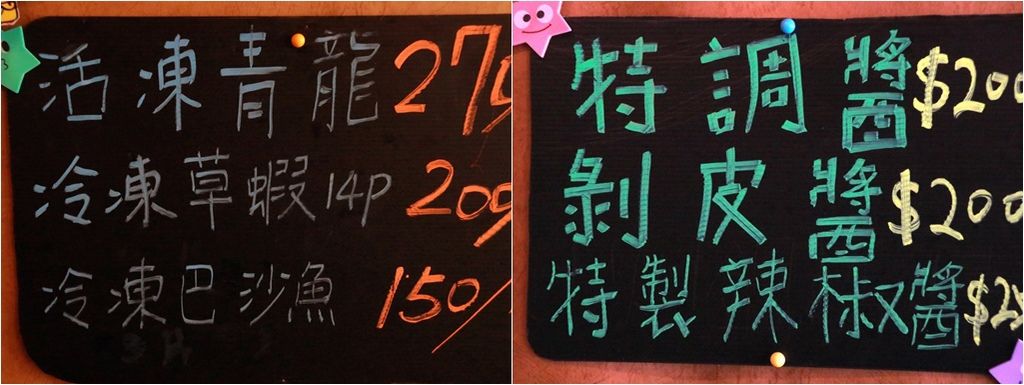 活凍青龍 275
冷凍草蝦14P 209
冷凍巴沙魚 150/
特調醬 $200
剝皮醬 $200
特製辣椒醬